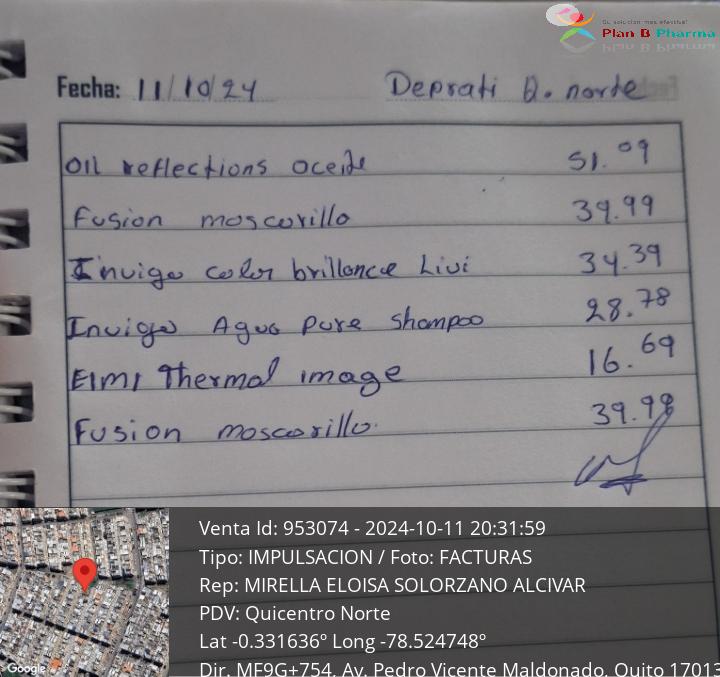 Su solución más efectiva!
Plan B Pharma
Fecha: 11/10/24 Deprati Q. norte
Oil reflections aceite 51.09
Fusion mascarilla 39.99
Invigo color brillance Livi 34.39
Invigo Agua Pure shampoo 28.78
EIMI Thermal image 16.69
Fusion mascarilla. 39.99
Venta Id: 953074 - 2024-10-11 20:31:59
Tipo: IMPULSACION / Foto: FACTURAS
Rep: MIRELLA ELOISA SOLORZANO ALCIVAR
PDV: Quicentro Norte
Lat -0.331636° Long -78.524748°
Dir. MF9G+754, Av. Pedro Vicente Maldonado, Quito 17013
Google